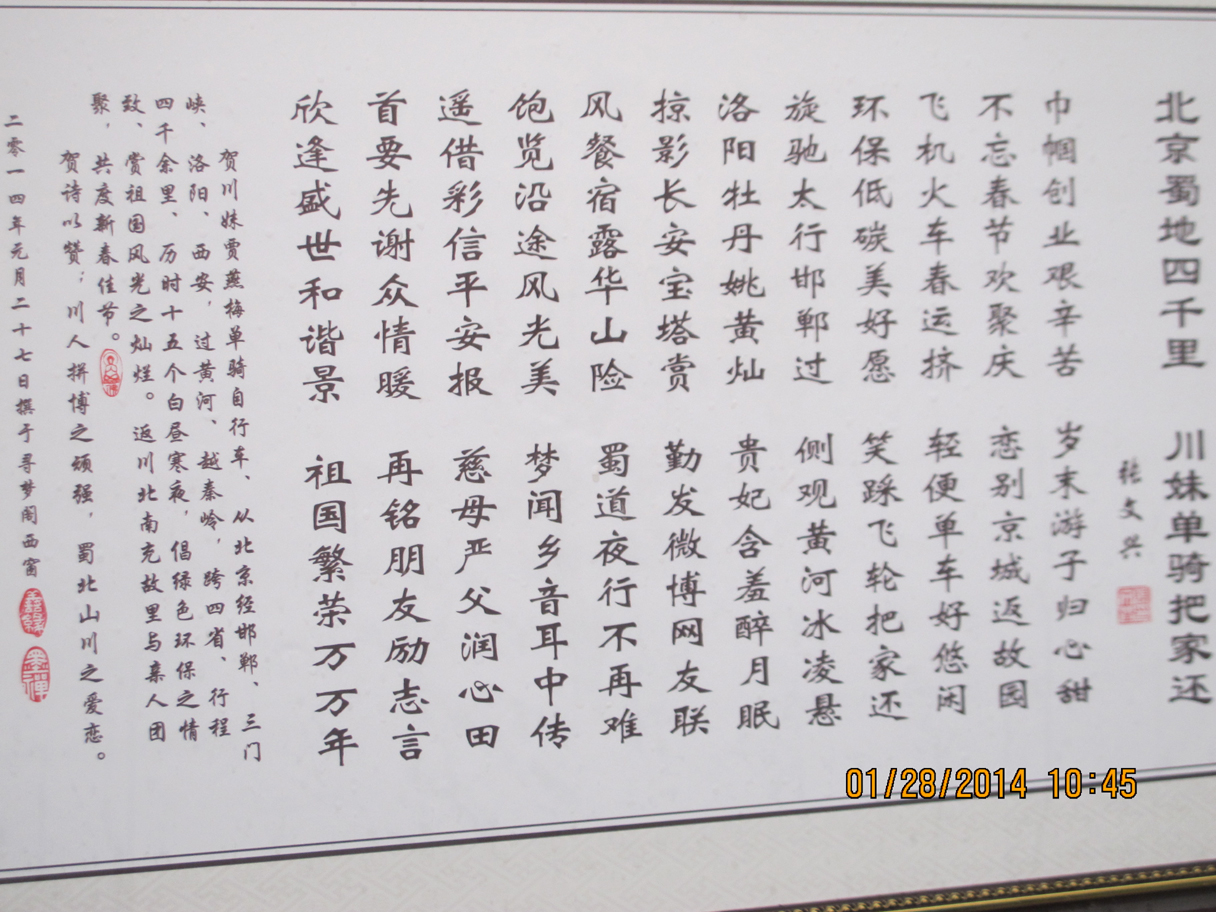 北京蜀地四千里 川妹单骑把家还
张文兴
巾帼创业艰辛苦 岁末游子归心甜
不忘春节欢聚庆 恋别京城返故园
飞机火车春运挤 轻便单车好悠闲
环保低碳美好愿 笑踩飞轮把家还
旋驰太行邯郸过 侧观黄河冰凌悬
洛阳牡丹姚黄灿 贵妃含羞醉月眠
掠影长安宝塔赏 勤发微博网友联
风餐宿露华山险 蜀道夜行不再难
饱览沿途风光美 梦闻乡音耳中传
遥借彩信平安报 慈母严父润心田
首要先谢众情暖 再铭朋友励志言
欣逢盛世和谐景 祖国繁荣万万年
贺川妹贾燕梅单骑自行车、从北京经邯郸、三门
峡、洛阳、西安，过黄河、越秦岭，跨四省、行程
四千余里、历时十五个白昼寒夜，倡绿色环保之情
致、赏祖国风光之灿烂。返川北南充故里与亲人团
聚，共度新春佳节。
贺诗以赞；川人拼博之顽强，蜀北山川之爱恋。
二零一四年元月二十七日撰于寻梦阁西窗
01/28/2014 10:45